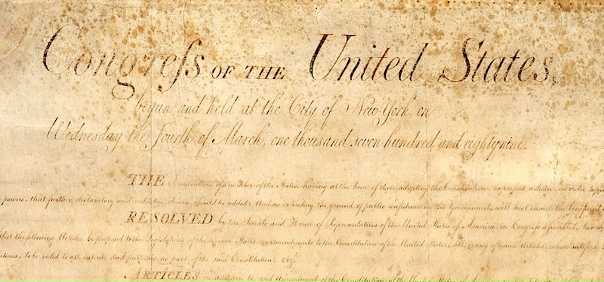 Congreſs OF THE United States,
begun and held at the City of New York, on
Wednesday the fourth of March, one thousand seven hundred and eighty nine.
THE Conventions of a number of the States, having at the time of their adopting the Constitution, expressed a desire, in order to prevent
powers, that further declaratory and restrictive clauses should be added: And as extending the ground of public confidence in the Government, will best ensure the beneficent
RESOLVED by the Senate and House of Representatives of the United States of America, in Congress assembled, two
that the following Articles be proposed to the Legislatures of the several States, as amendments to the Constitution of the United States, all, or any of which Articles, when ratified
to be valid to all intents and purposes, as part of the said Constitution. viz.
ARTICLES in addition to, and amendment of the Constitution of the United States